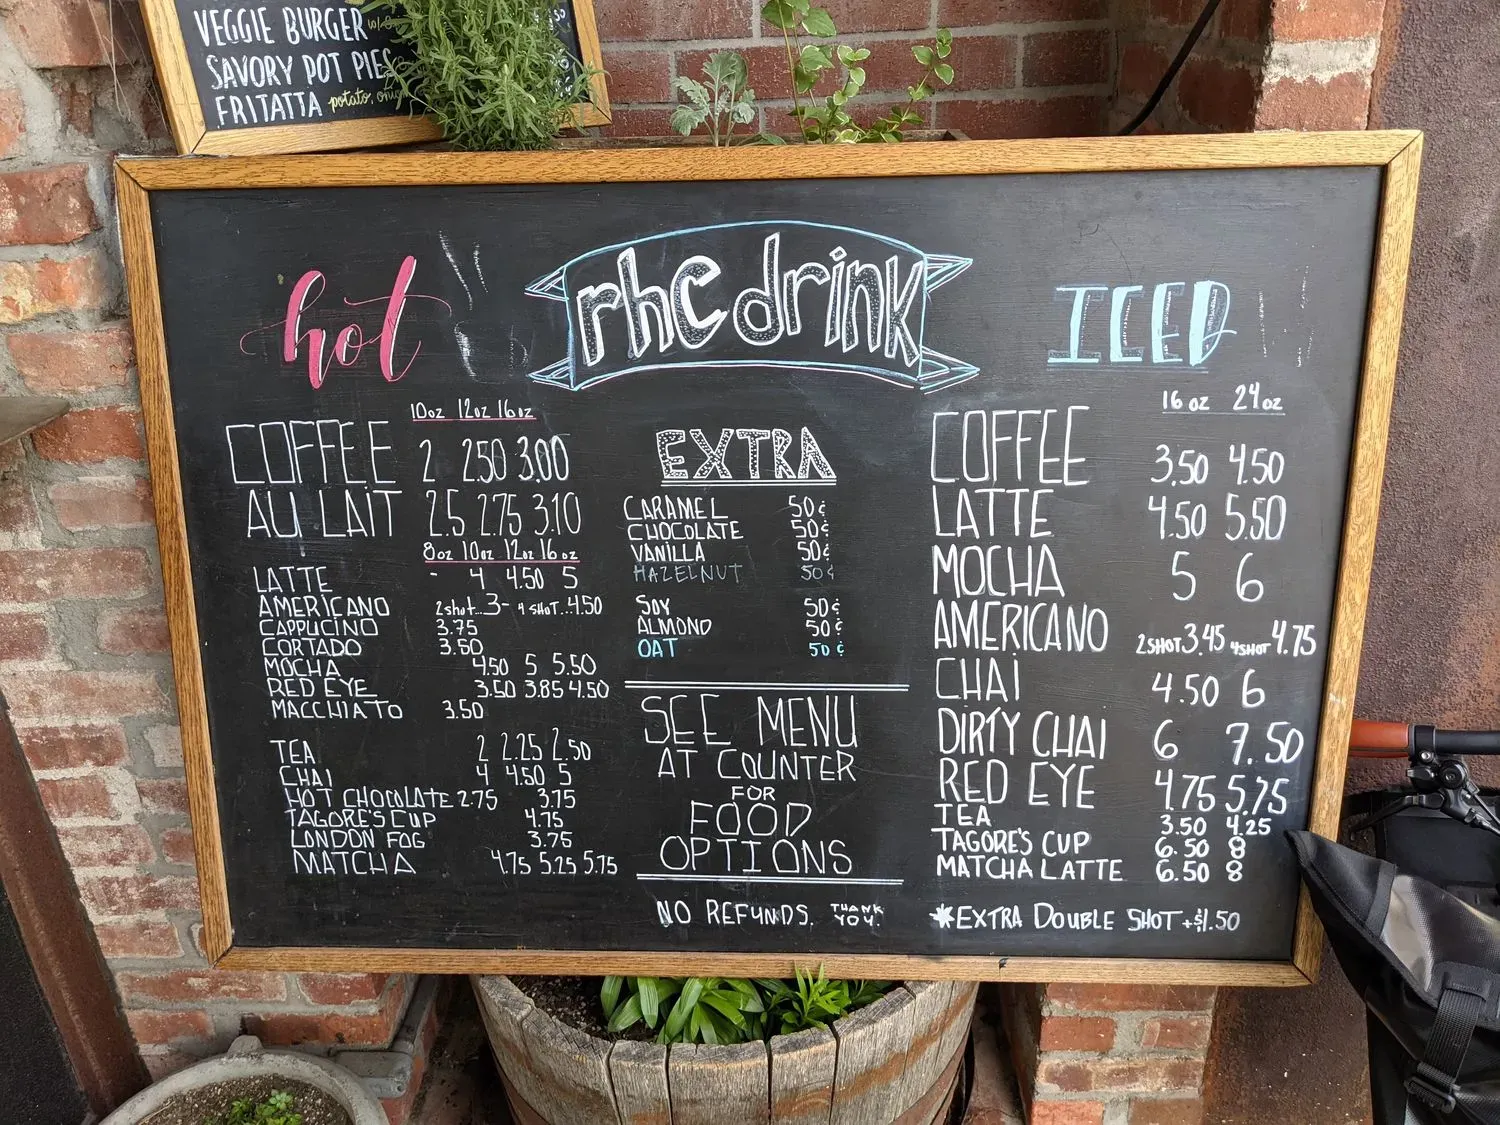 VEGGIE BURGER
SAVORY POT PIES
FRITATTA potato,
rhc drink
hot
10oz 12oz 16oz
COFFEE 2 2.50 3.00
AU LAIT 2.5 2.75 3.10
8oz 10oz 12oz 16oz
LATTE - 4 4.50 5
AMERICANO 2shot...3- 4 SHOT..4.50
CAPPUCINO 3.75
CORTADO 3.50
MOCHA 4.50 5 5.50
RED EYE 3.50 3.85 4.50
MACCHIATO 3.50
TEA 2 2.25 2.50
CHAI 4 4.50 5
HOT CHOCOLATE 2.75 3.75
TAGORE'S CUP 4.75
LONDON FOG 3.75
MATCHA 4.75 5.25 5.75
EXTRA
CARAMEL 50¢
CHOCOLATE 50¢
VANILLA 50¢
HAZELNUT 50¢
SOY 50¢
ALMOND 50¢
OAT 50¢
SEE MENU
AT COUNTER
FOR
FOOD
OPTIONS
NO REFUNDS. THANK YOU.
ICED
16 oz 24oz
COFFEE 3.50 4.50
LATTE 4.50 5.50
MOCHA 5 6
AMERICANO 2SHOT 3.45 4SHOT 4.75
CHAI 4.50 6
DIRTY CHAI 6 7.50
RED EYE 4.75 5.75
TEA 3.50 4.25
TAGORE'S CUP 6.50 8
MATCHA LATTE 6.50 8
*EXTRA DOUBLE SHOT +$1.50